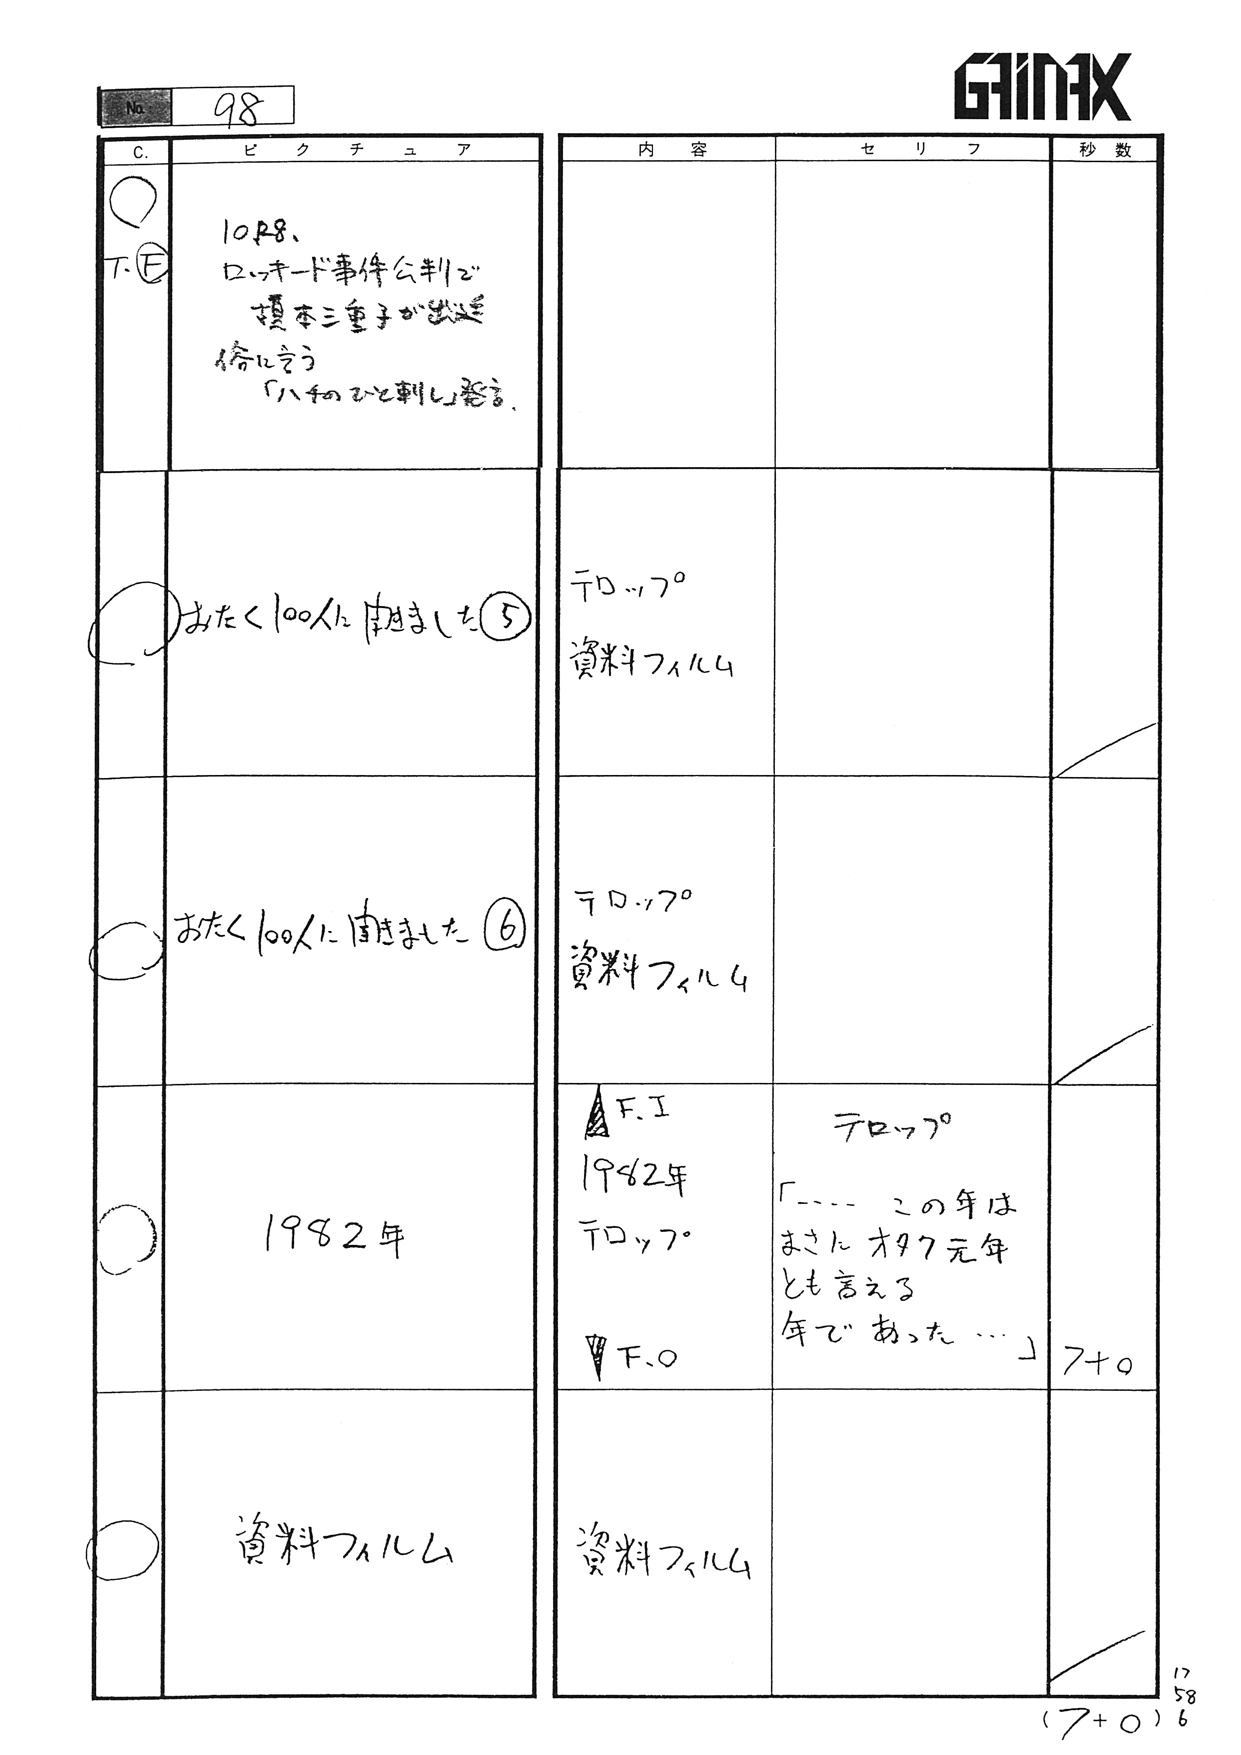 GAINAX
No. 98
C. ピクチュア 内容 セリフ 秒数
T. F
10月28、
ロッキード事件公判で
榎本三恵子が出廷
俗に言う
「ハチのひと刺し」発言.
おたく100人に聞きました ⑤
テロップ
資料フィルム
おたく100人に聞きました ⑥
テロップ
資料フィルム
1982年
F.I
1982年
テロップ
F.O
テロップ
「---- この年は
まさに オタク元年
とも言える
年で あった …」
7+0
資料フィルム
資料フィルム
17
58
6
(7+0)